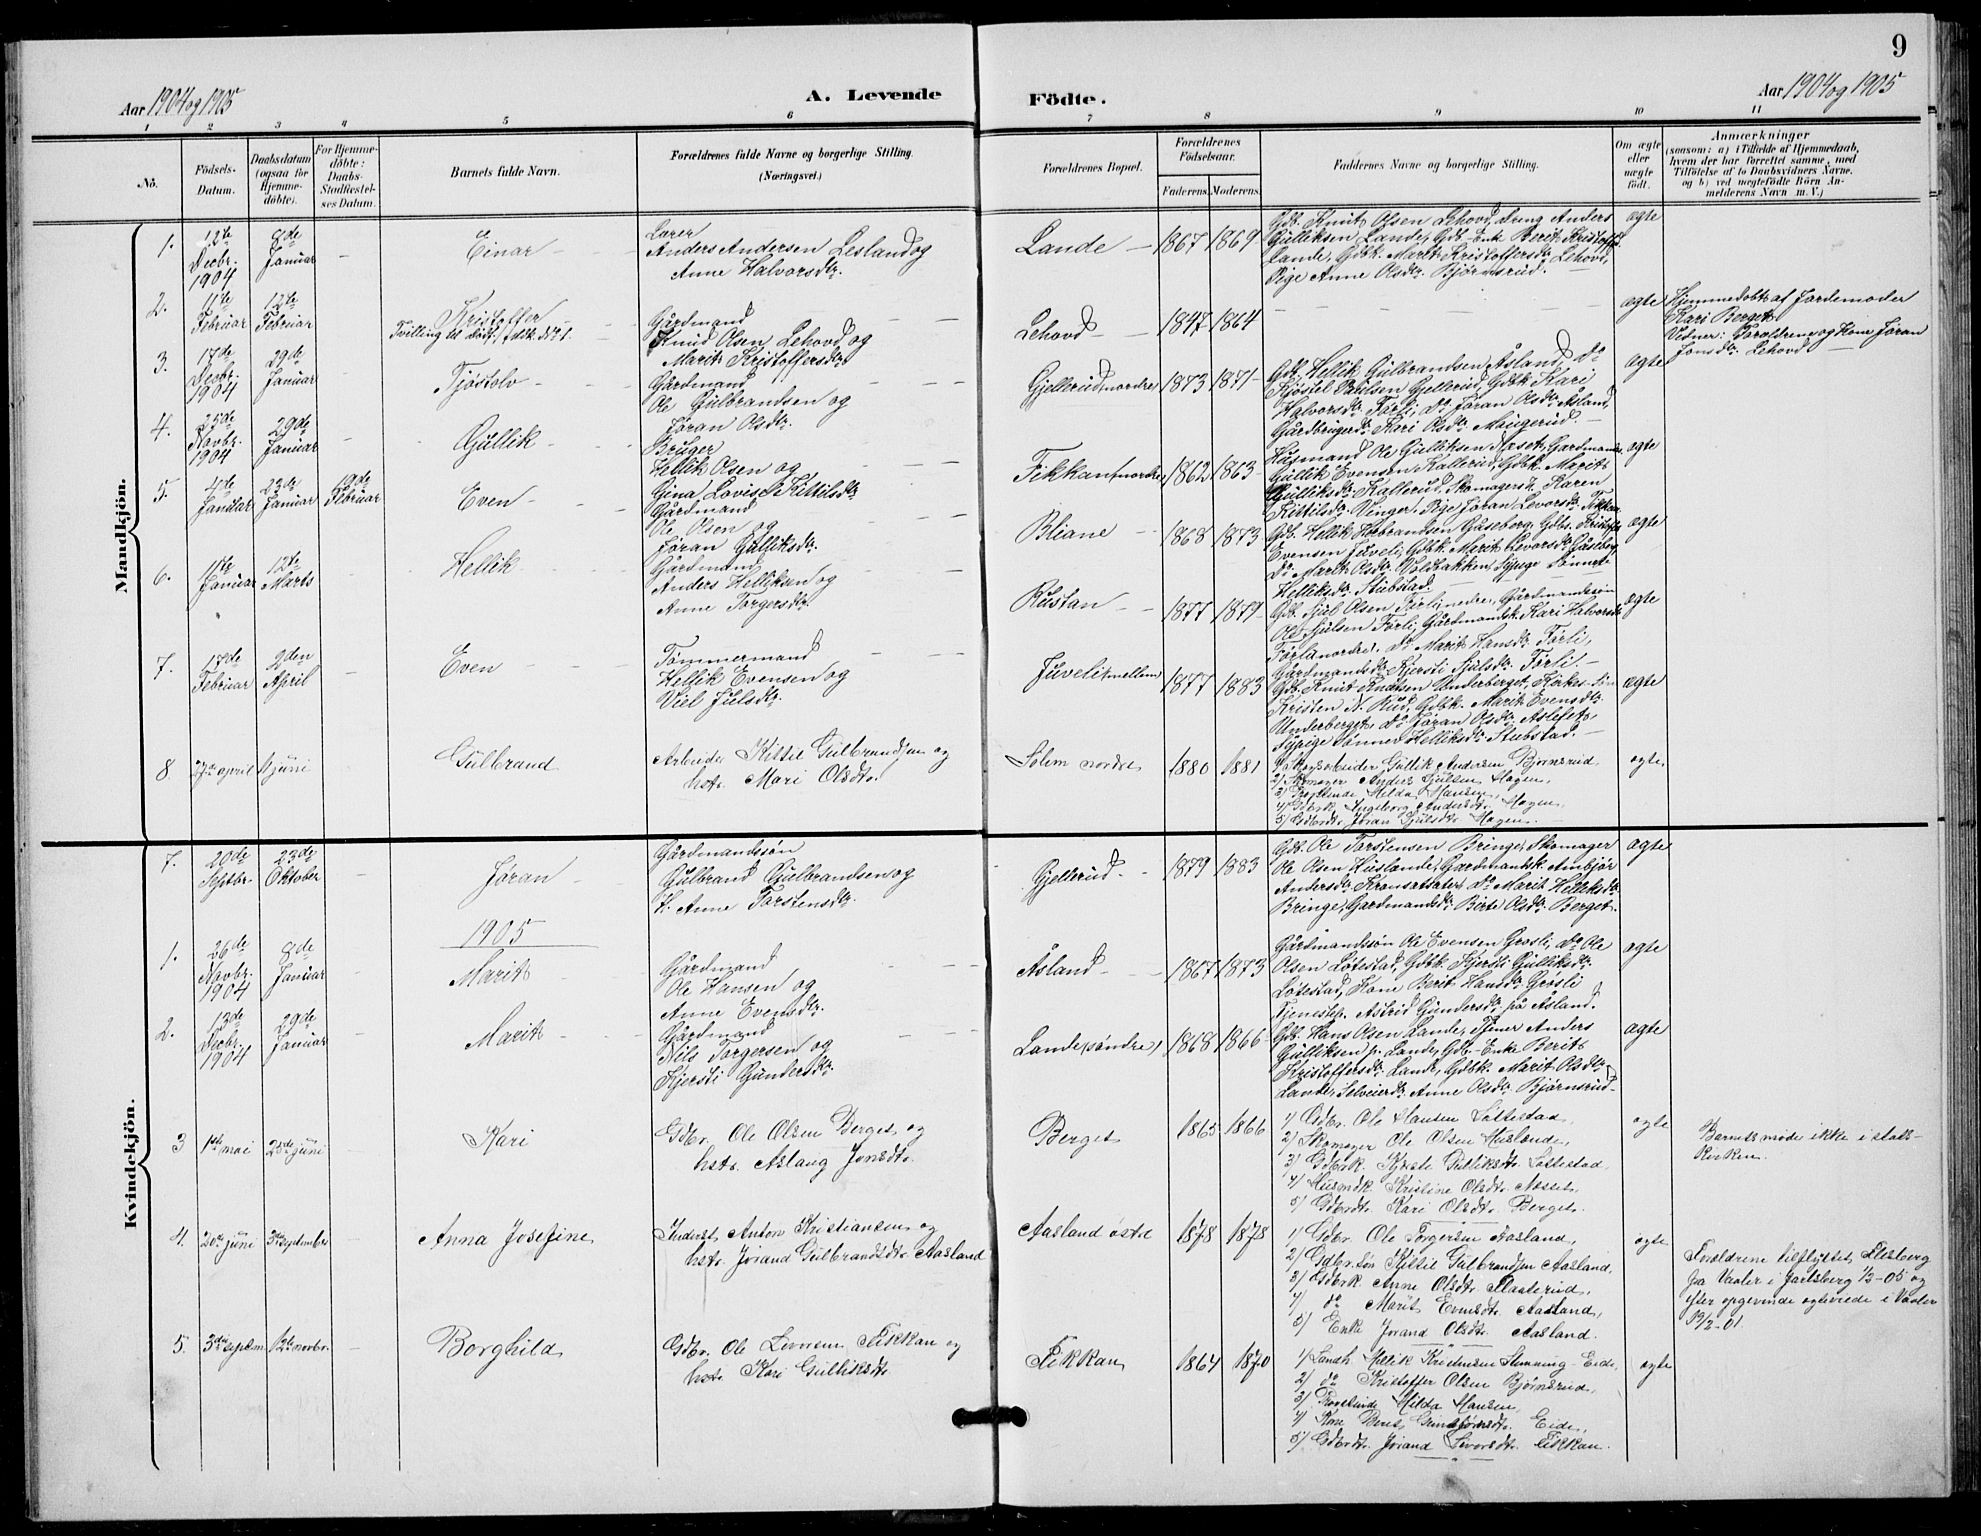 9
Aar 1904 og 1905
A. Levende
Födte.
Aar 1904 og 1905
1 2 3 4 5 6 7 8 9 10 11
No.
Födsels-Datum.
Daabsdatum (ogsaa for Hjemme-döbte).
For Hjemme-döbte: Daabs-Stadfæstel-ses Datum.
Barnets fulde Navn.
Forældrenes fulde Navne og borgerlige Stilling.
(Næringsvei.)
Forældrenes Bopæl.
Forældrenes Födselsaar.
Faderens. Moderens.
Faddernes Navne og borgerlige Stilling.
Om ægte eller uægte födt.
Anmærkninger
(saasom: a) i Tilfælde af Hjemmedaab,
hvem der har forrettet samme, med
Tilföielse af to Daabsvidners Navne.
og b) ved uægtefödte Börn An-
melderens Navn m. V.)
Mandkjön.
1. 12te Decbr. 1904 8de Januar - Einar
Lærer
Anders Andersen Lesland og
Anne Halvorsdtr.
Lande - 1867 1869
Gdb. Knut Olsen Lehovd, Dreng Anders
Gulliksen Lande, Gdb. Enke Berit Kristoffsd.
Lande, Gdbk. Marit Kristoffersdtr. Lehovd,
Pige Anne Olsdtr. Bjørnsrud.
ægte
2. 11te Februar 12te Februar - Kristoffer
Tvilling til dødf. fdsk. No 1.
Gårdmand
Knud Olsen Lehovd og
Marit Kristoffersdtr.
Lehovd - 1847 1864
ægte
Hjemmedøbt af Jordemoder
Kari Berget.
Vidner: Forældrene og Kone Jøran
Jonsdtr. Lehovd
3. 17de Decbr. 1904 29de Januar - Tjøstolv
Gårdmand
Ole Gulbrandsen og
Jøran Olsdtr.
Gjellerud (nordre) 1873 1871
Gdb. Hellik Gulbrandsen Åsland, Do
Kjøstel Pålsen Gjellerud, Gdbk. Kari
Halvorsdtr. Førli, Do. Jøran Olsdtr. Åsland,
Gårdbrugerdtr. Kari Olsdtr. Maugerud.
ægte
4. 25de Novbr. 1904 29de Januar - Gullik
Bruger
Hellik Olsen og
Gina Lovise Kittilsdtr.
Fikkan (nordre) 1862 1863
Husmand Ole Gulliksen Næset, Gardmand
Gullik Evensen Kallerud, Gdbk. Marit
Gulliksdtr. Kallerud, Skomagersk. Karen
Kittilsdtr. Vinger, Pige Jøran Levorsdtr. Fikkan
ægte
5. 4de Januar 22de Januar 19de Februar Even
Gårdmand
Ole Olsen og
Jøran Gulliksdtr.
Bliane - 1868 1873
Gdb. Hellik Høbrandsen Gåseberg, Gdbs. Kristoffer
Evensen Juveli, Gdbk. Marit Levorsdtr. Gåseberg,
Do Marit Olsdtr. Voldbakken, Sypige Sønnete
Helliksdtr. Stubstad
ægte
6. 11te Januar 12te Marts - Hellik
Gårdmand
Anders Helliksen og
Anne Torgersdtr.
Rustan - - 1877 1879
Gdb. Sjul Olsen Førli nedre, Gårdmandssøn
Ole Sjulsen Førli, Gårdmandsk. Kari Halvorsdtr.
Førli nordre, Do. Marit Hansdtr. Førli,
Gårdmandsdtr. Kjersti Sjulsdtr. Førli.
ægte
7. 17de Februar 2den April - Even
Tømmermand
Hellik Evensen og
Viel Julsdtr.
Juveli (mellem) 1877 1883
Gdb. Knut Knutsen Underberget, Kirkes.
Kristen N. Rud, Gdbk. Marit Evensdtr.
Underberget, Do Jøran Olsdtr. Aslefet,
Sypige Sønnev Helliksdtr. Stubstad.
ægte
8 27de april 11 juni Gulbrand
Arbeider Kittil Gulbrandsen og
hstr. Mari Olsdtr.
Solem nordre 1880 1881
1) Skogsarbeider Gullik Andersen Bjørnsrud
2) Skomager Anders Sjulsen Hagen,
3) Frøkeninde Hilda Hansen,
4) Gdbrk. Ingeborg Andersdtr. Hagen,
5) Gdbrdtr. Jøran Sjulsdtr. Hagen.
ægte.
Kvindekjön.
7. 20de Septbr. 23de Oktober - Jøran
Gårdmandssøn
Gulbrand Gulbrandsen og
H. Anne Torstensdtr.
Gjellerud - 1879 1883
Gdb. Ole Torstensen Bringe, Skomager
Ole Olsen Huslande, Gardmandsk. Ambjør
Andersdtr. Fransåtsater, Do Marit Helliksdtr.
Bringe, Gardmandsdtr. Birte Olsdtr. Berget.
ægte
1905
1. 26de Novbr. 1904 8de Januar Marit
Gårdmand
Ole Hansen og
Anne Evensdtr.
Åsland - 1867 1873
Gårdmandssøn Ole Evensen Grosli, Do Ole
Olsen Løtestad, Gdbk. Kjersti Gulliksdtr.
Løtestad, Kone Berit Hansdtr. Grosli
Tjenestep. Astrid Gundersdtr. på Åsland.
ægte
2. 13de Decbr. 1904 29de Januar - Marit
Gårdmand
Nils Torgersen og
Kjersti Gundersdtr.
Lande (søndre) 1868 1866
Gdb. Hans Olsen Lande, Tjener Anders
Gulliksen p. Lande, Gdb. Enke Berit
Kristoffersdtr. Lande, Gdbk. Marit Olsdtr.
Lande, Selveierdtr. Anne Olsdtr. Bjørnsrud
ægte
3 1ste mai 25de juni - Kari
Gdbr. Ole Olsen Berget og
hstr. Aslaug Jonsdtr.
Berget 1865 1866
1) Gdbr. Ole Hansen Løttestad,
2) Skomager Ole Olsen Huslande,
3) Gdbrk. Kjersti Gulliksdtr. Løttestad,
4) Husmdk. Kristine Olsdtr. Næset,
5) Gdbrdtr. Kari Olsdtr. Berget.
ægte
Barnets mode ikke i stats-
kirken.
4. 20de juni 3de september - Anna Josefine
Inderst Anton Kristiansen og
hstr. Jørand Gulbrandsdtr. Aasland
Aasland østre 1878 1878
1) Gdbr. Ole Torgersen Aasland,
2) Gdbr. søn Kittil Gulbrandsen Aasland,
3) Gdbrk. Anne Olsdtr. Slaaterud,
4) do Marit Evensdtr. Aasland,
5) Enke Jørand Olsdtr. Aasland.
ægte
Forældrene tilflyttet Flesberg
fra Vaaler i Jarlsberg 1/3-05 og
efter opgivende ægteviede i Vaaler
19/2-01
5. 3die septem. 12te novbr. - Borghild
Gdbr. Ole Levorsen Fikkan og
hstr. Kari Gulliksdtr.
Fikkan 1864 1870
1) Landh. Hellik Kristensen Stenning Eide,
2) do Kristoffer Olsen Bjørnsrud,
3) Frøkeninde Hilda Hansen,
4) Kone Berit Gundbjørnsdtr. Eide,
5) Gdbrdtr. Jørand Levorsdtr. Fikkan.
ægte